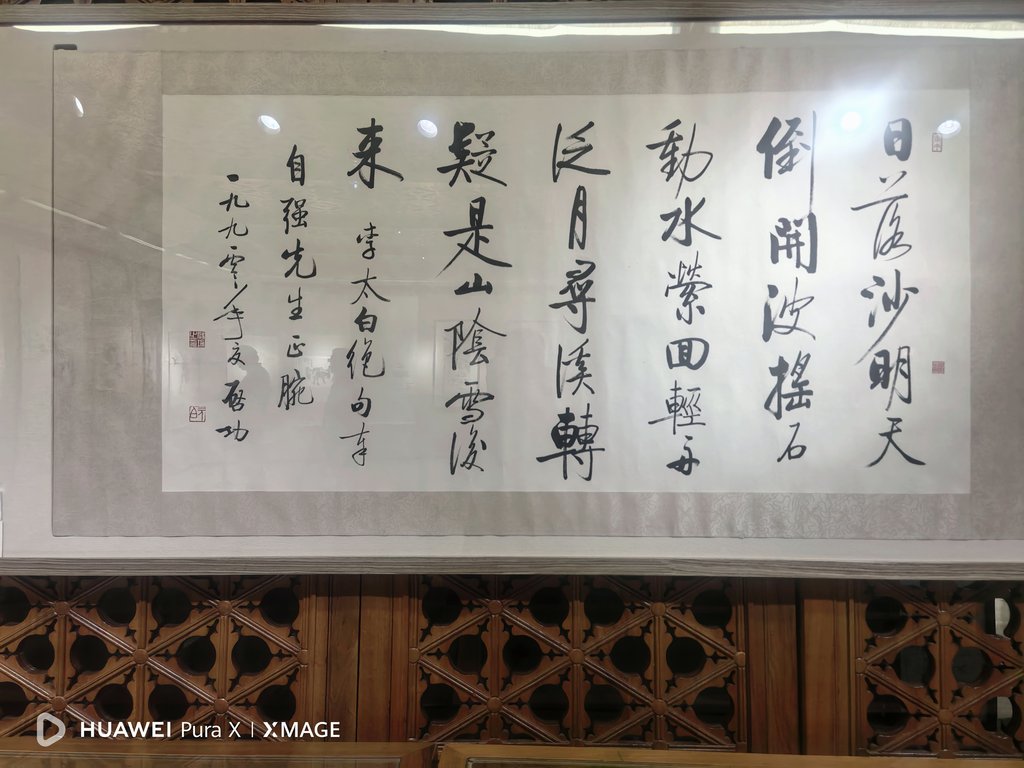 日落沙明天
倒開波搖石
動水縈回輕舟
泛月尋溪轉
疑是山陰雪後
来
李太白絕句奉
自强先生正腕
一九九零年夏啓功
HUAWEI Pura X | XMAGE